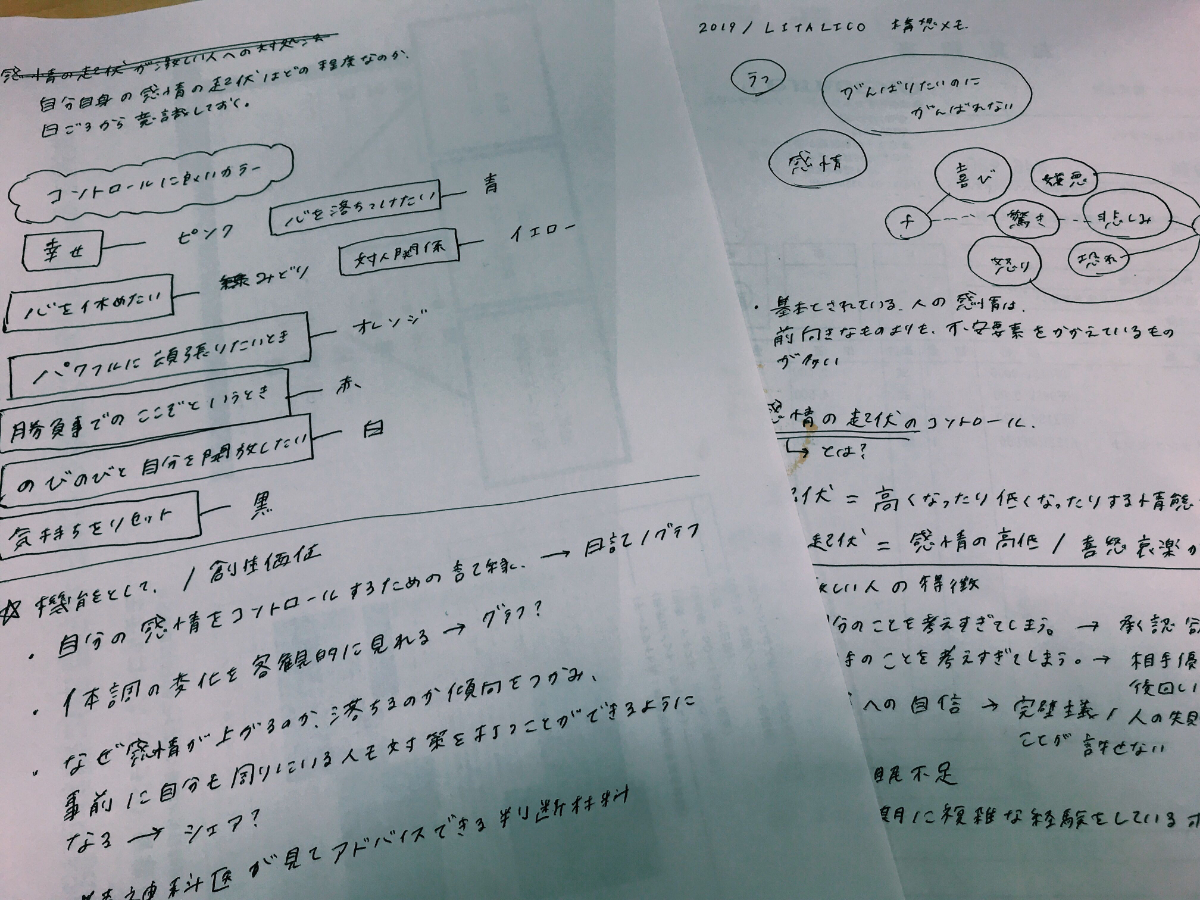 感情の起伏が激しい人への対処法
自分自身の感情の起伏はどの程度なのか、
日ごろから意識しておく。
コントロールに良いカラー
幸せ ピンク
心を落ちつけたい 青
心を休めたい みどり
対人関係 イエロー
パワフルに頑張りたいとき オレンジ
勝負事でのここぞというとき 赤
のびのびと自分を開放したい 白
気持ちをリセット 黒
☆ 機能として、/ 創造価値
・自分の感情をコントロールするための記録、→ 日記/グラフ
・体調の変化を客観的に見れる → グラフ?
・なぜ感情が上がるのか、落ちるのか傾向をつかみ、
事前に自分も周りにいる人も対策を打つことができるように
なる → シェア?
精神科医が見てアドバイスできる判断材料
2019 / LITALICO 構想メモ
ラフ
がんばりたいのに
がんばれない
感情
+
喜び
嫌悪
驚き
悲しみ
怒り
恐れ
・基本とされている、人の感情は、
前向きなものよりも、不安要素をかかえているもの
が多い
感情の起伏のコントロール.
↳ とは?
起伏 = 高くなったり低くなったりする情態
起伏 = 感情の高低 / 喜怒哀楽が
しい人の特徴
分のことを考えすぎてしまう。→ 承認
手のことを考えすぎてしまう。→ 相手優
後回し
への自信 → 完璧主義 / 人の失敗
ことが許せない
眠不足
期に複雑な経験をしている